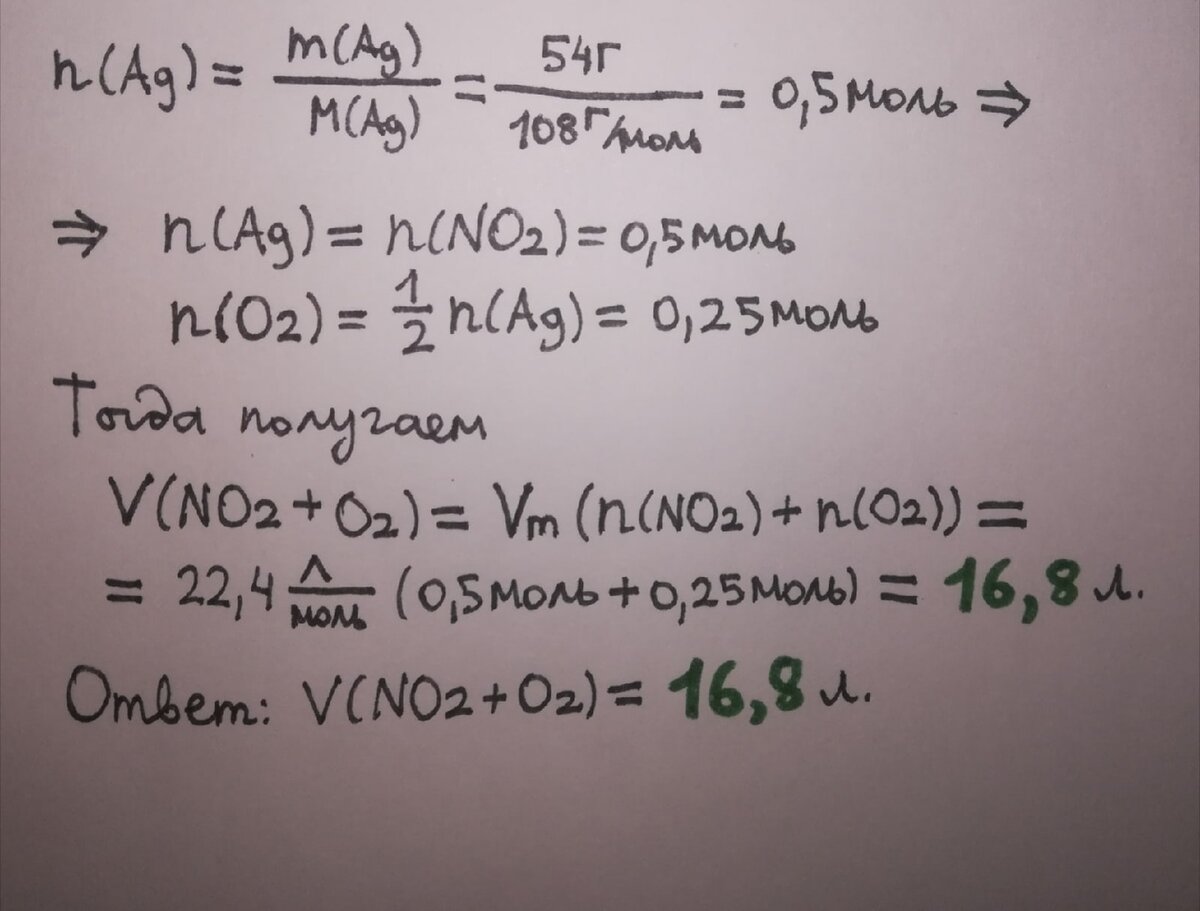 n(Ag) = m(Ag)/M(Ag) = 54г/108г/моль = 0,5моль ⇒
⇒ n(Ag) = n(NO2) = 0,5моль
n(O2) = 1/2 n(Ag) = 0,25моль
Тогда получаем
V(NO2 + O2) = Vm (n(NO2) + n(O2)) =
= 22,4 л/моль (0,5моль + 0,25моль) = 16,8 л.
Ответ: V(NO2 + O2) = 16,8 л.